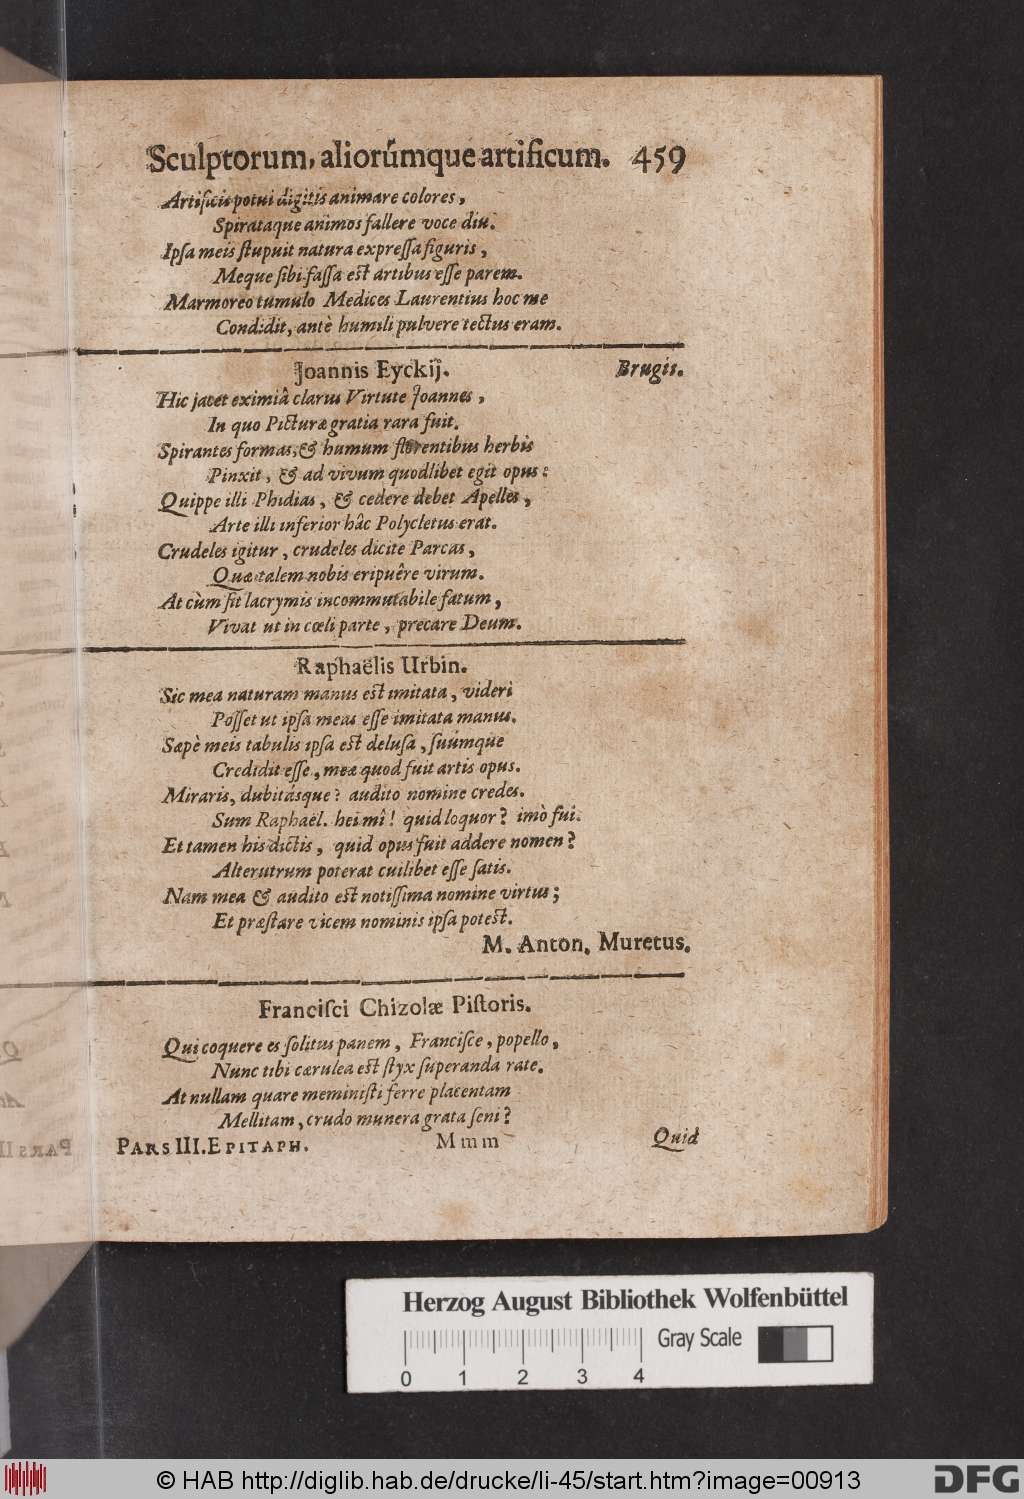 Sculptorum, aliorúmque artificum. 459
Artificis potui digitis animare colores,
Spirataque animos fallere voce diu.
Ipſa meis ſtupuit natura expreſſa figuris,
Meque ſibi faſſa eſt artibus eſſe parem.
Marmoreo tumulo Medices Laurentius hoc me
Condidit, antè humili pulvere tectus eram.
Joannis Eyckij. Brugis.
Hic jacet eximiâ clarus Virtute Joannes,
In quo Picturæ gratia rara fuit.
Spirantes formas, & humum florentibus herbis
Pinxit, & ad vivum quodlibet egit opus:
Quippe illi Phidias, & cedere debet Apelles,
Arte illi inferior hâc Polycletus erat.
Crudeles igitur, crudeles dicite Parcas,
Quæ talem nobis eripuêre virum.
At cùm ſit lacrymis incommutabile fatum,
Vivat ut in cœli parte, precare Deum.
Raphaëlis Urbin.
Sic mea naturam manus eſt imitata, videri
Poſſet ut ipſa meas eſſe imitata manus.
Sæpè meis tabulis ipſa eſt deluſa, ſuúmque
Credidit eſſe, meæ quod fuit artis opus.
Miraris, dubitásque? audito nomine credes.
Sum Raphaël. hei mî! quid loquor? imò fui.
Et tamen his dictis, quid opus fuit addere nomen?
Alterutrum poterat cuilibet eſſe ſatis.
Nam mea & audito eſt notiſſima nomine virtus;
Et præſtare vicem nominis ipſa poteſt.
M. Anton. Muretus.
Franciſci Chizolæ Piſtoris.
Qui coquere es ſolitus panem, Franciſce, popello,
Nunc tibi cærulea eſt ſtyx ſuperanda rate.
At nullam quare meminiſti ferre placentam
Mellitam, crudo munera grata ſeni?
PARS III. EPITAPH. Mmm Quid
Herzog August Bibliothek Wolfenbüttel
Gray Scale
0 1 2 3 4
© HAB http://diglib.hab.de/drucke/li-45/start.htm?image=00913
DFG